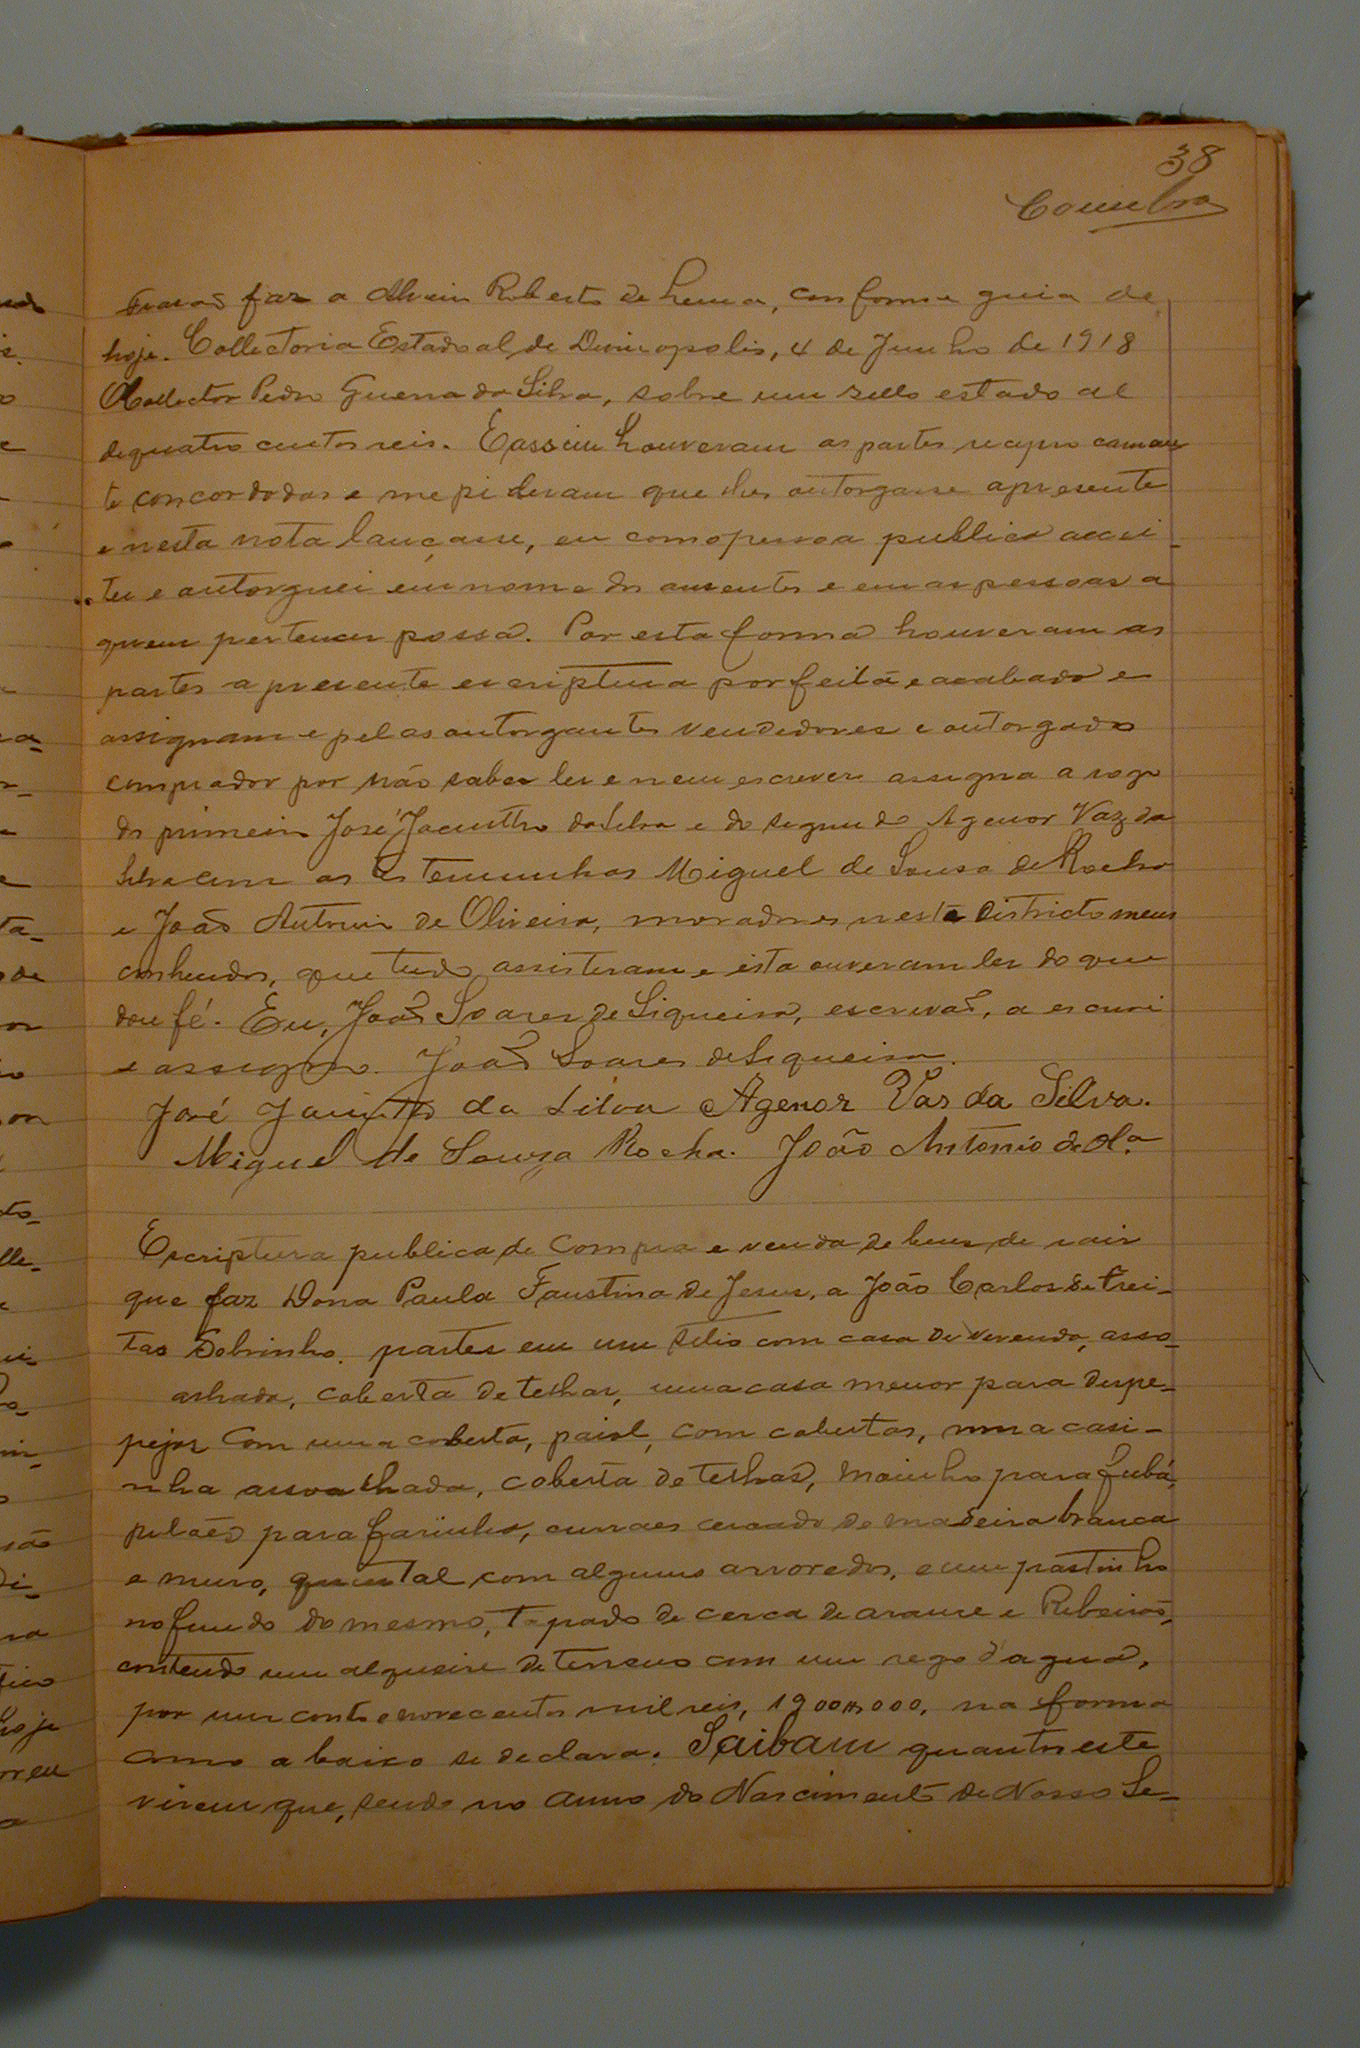 38
Coimbra
faz a Alvim Roberto de Lema, conforme guia de
hoje. Collectoria Estadoal de Divinopolis, 4 de Junho de 1918
O Collector Pedro Guerra da Silva, sobre um sello estadoal
de quatro centos reis. E assim houveram as partes reciprocamen
te concordadas e me pideram que lhes outorgasse a presente
e nesta nota lançasse, eu como pessoa publica accei-
tei e outorguei em nome dos ausentes e em as pessoas a
quem pertencer possa. Por esta forma houveram as
partes a presente escriptura por feita e acabada e
assignam e pelas outorgantes vendedores e outorgado
comprador por não saber ler e nem escrever assigna a rogo
do primeiro José Jacintho da Silva e do segundo Agenor Vaz da
Silva com as testemunhas Miguel de Sousa de Rocha
e João Antonio de Oliveira, moradores neste districto meus
conhecidos, que tudo assisteram e esta ouveram ler do que
dou fé. Eu, João Soares de Siqueira, escrivão, a escrevi
e assigno. João Soares de Siqueira.
José Jacintho da Silva Agenor Vas da Silva.
Miguel de Souza Rocha. João Antonio de Ol.a
Escriptura publica de compra e venda de bens de raiz
que faz Dona Paula Faustina de Jesus, a João Carlos de Frei-
tas Sobrinho. partes em um sitio com casa de vivenda, asso-
alhada, coberta de telhas, uma casa menor para despe-
pejos com uma coberta, paiol, com cobertas, uma casi-
nha assoalhada, coberta de telhas, moinho para fubá,
pilões para farinha, curraes cercado de madeira branca
e muro, quintal com alguns arvoredos, e um pastinho
no fundo do mesmo, tapado de cerca de arame e Ribeirão,
contendo um alqueire de terreno com um rego d'agua,
por um conto e novecentos mil reis, 1900$000, na forma
como a baixo se declara. Saibam quantos este
virem que, sendo no anno do Nascimento de Nosso Se-